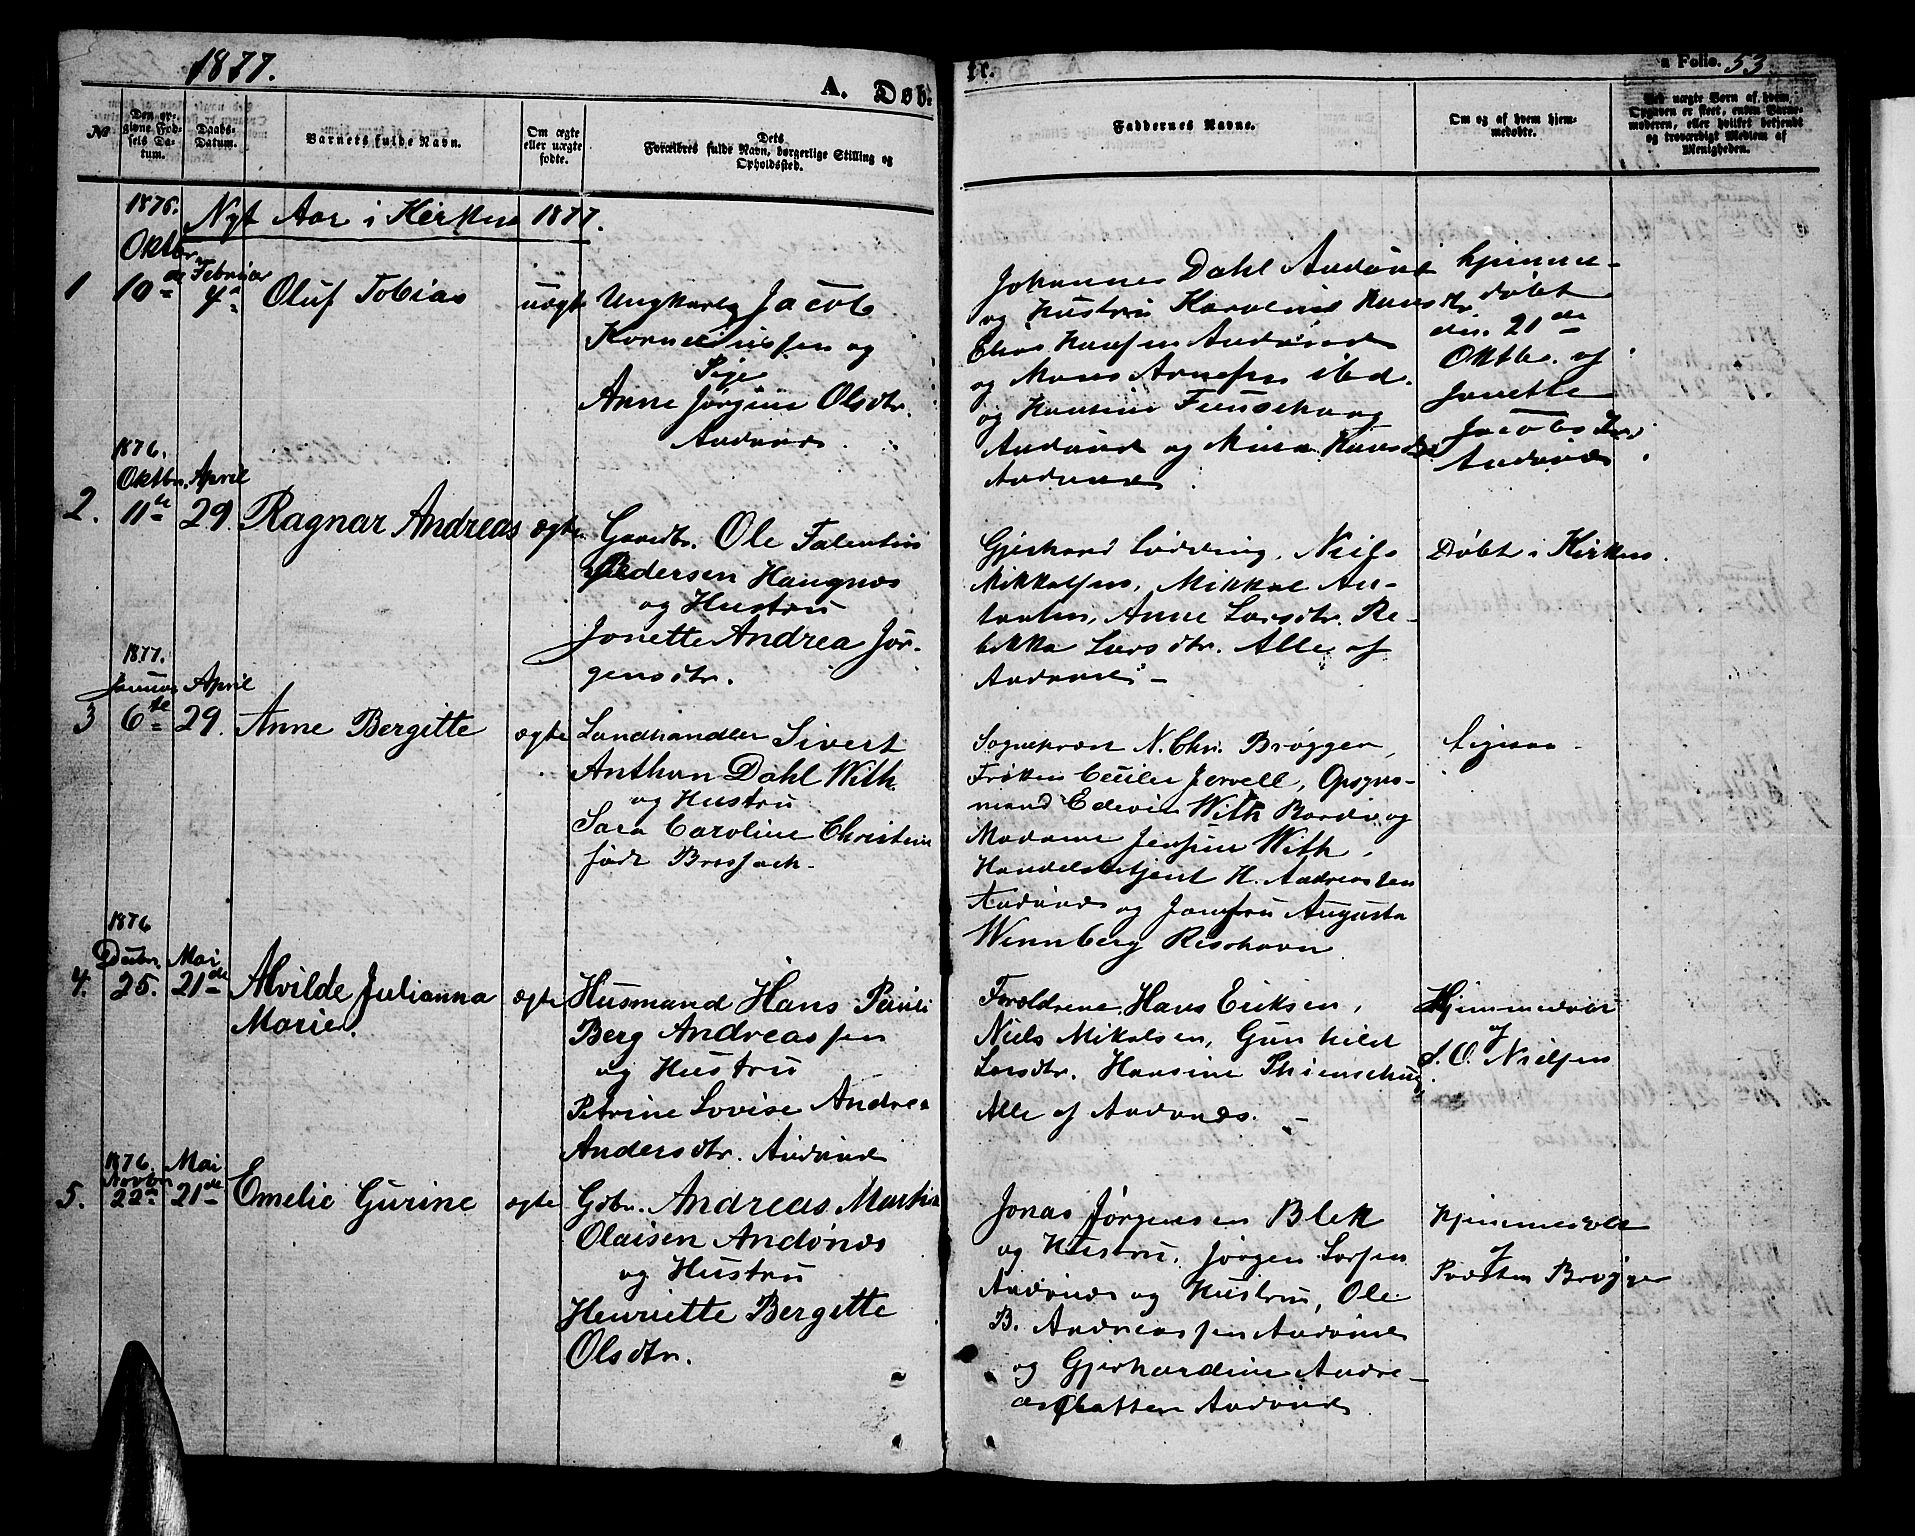 1877.
A. Døb-
te.
a Folio. 53
No
Den opgivne Fødsels Datum.
Daabs-
Datum.
Barnets fulde Navn.
Om ægte
eller uægte
fødte.
Dets
Forældres fulde Navn, borgerlige Stilling og
Opholdssted.
Faddernes Navne.
Om og af hvem hjem-
medøbte.
Ved uægte Børn af hvem
Opgaven er skeet, enten Barne-
moderen, eller hvilket bekjendt
og troværdigt Medlem af
Menigheden.
Nyt Aar i Kirken 1877.
1
1876.
Oktbr.
10de
Februar
4de
Oluf Tobias
uægte
Ungkarl Jacob
Korneliussen og
Pige
Anne Jørgine Olsdtr.
Andenæs.
Johannes Dahl Andenæs
og Hustru Karoline Hansdtr
Hansen Andenæs
og Mons Arnesen ibd.
og Hansine
Andenæs og Mina Hansdtr
Andenæs.
Hjemme-
døbt
den 21de
Oktbr. af
Jonette
Jacobs
Andenæs
2.
1876.
Oktbr.
11te
April
29.
Ragnar Andreas
ægte
Gaardbr. Ole Falentin
Pedersen Haugnæs
og Hustru
Jonette Andrea Jør-
gensdtr.
Gjerhard Lødding, Niels
Mikkalsen, Mikkal An-
Anne Larsdtr. Re-
bekka Larsdtr. Alle af
Andenæs -
Døbt i Kirken
3
1877.
Januar
6te
April
29.
Anne Bergitte
ægte
Landhandler Sivert
Anthon Dahl With
og Hustru
Sara Caroline Christine
født
Sognepræst N. Chr. Brøgger,
Frøken Jervell, Opsyns-
mand With og
Madame With,
Handelsbetjent H. Andreassen
Andenæs og Jomfru Augusta
Wennberg Risøhavn
Ligesaa -
4.
1876
Decbr.
25.
Mai
21de
Alvilde Julianna
Marie.
ægte
Husmand Hans Pauli
Berg Andreassen
og Hustru
Petrine Lovise Andrea
Andersdtr. Andenæs
Forældrene, Hans Eriksen,
Niels Mikalsen, Gunhild
Larsdtr. Hansine
Alle af Andenæs. -
Hjemmedøbt
af
S. O. Nielsen
5.
1876.
Novbr.
22de
Mai
21de
Emelie Gurine
ægte
Gdbr. Andreas Martin
Olaisen Andenæs
og Hustru
Henriette Bergitte
Olsdtr.
Jonas Jørgensen Blek
og Hustru, Jørgen Larsen
Andenæs og Hustru, Ole
B. Andreassen Andenæs
og Gjerhardine Andre-
asdatter Andenæs
Hjemmedøbt
af
Presten Brøgger